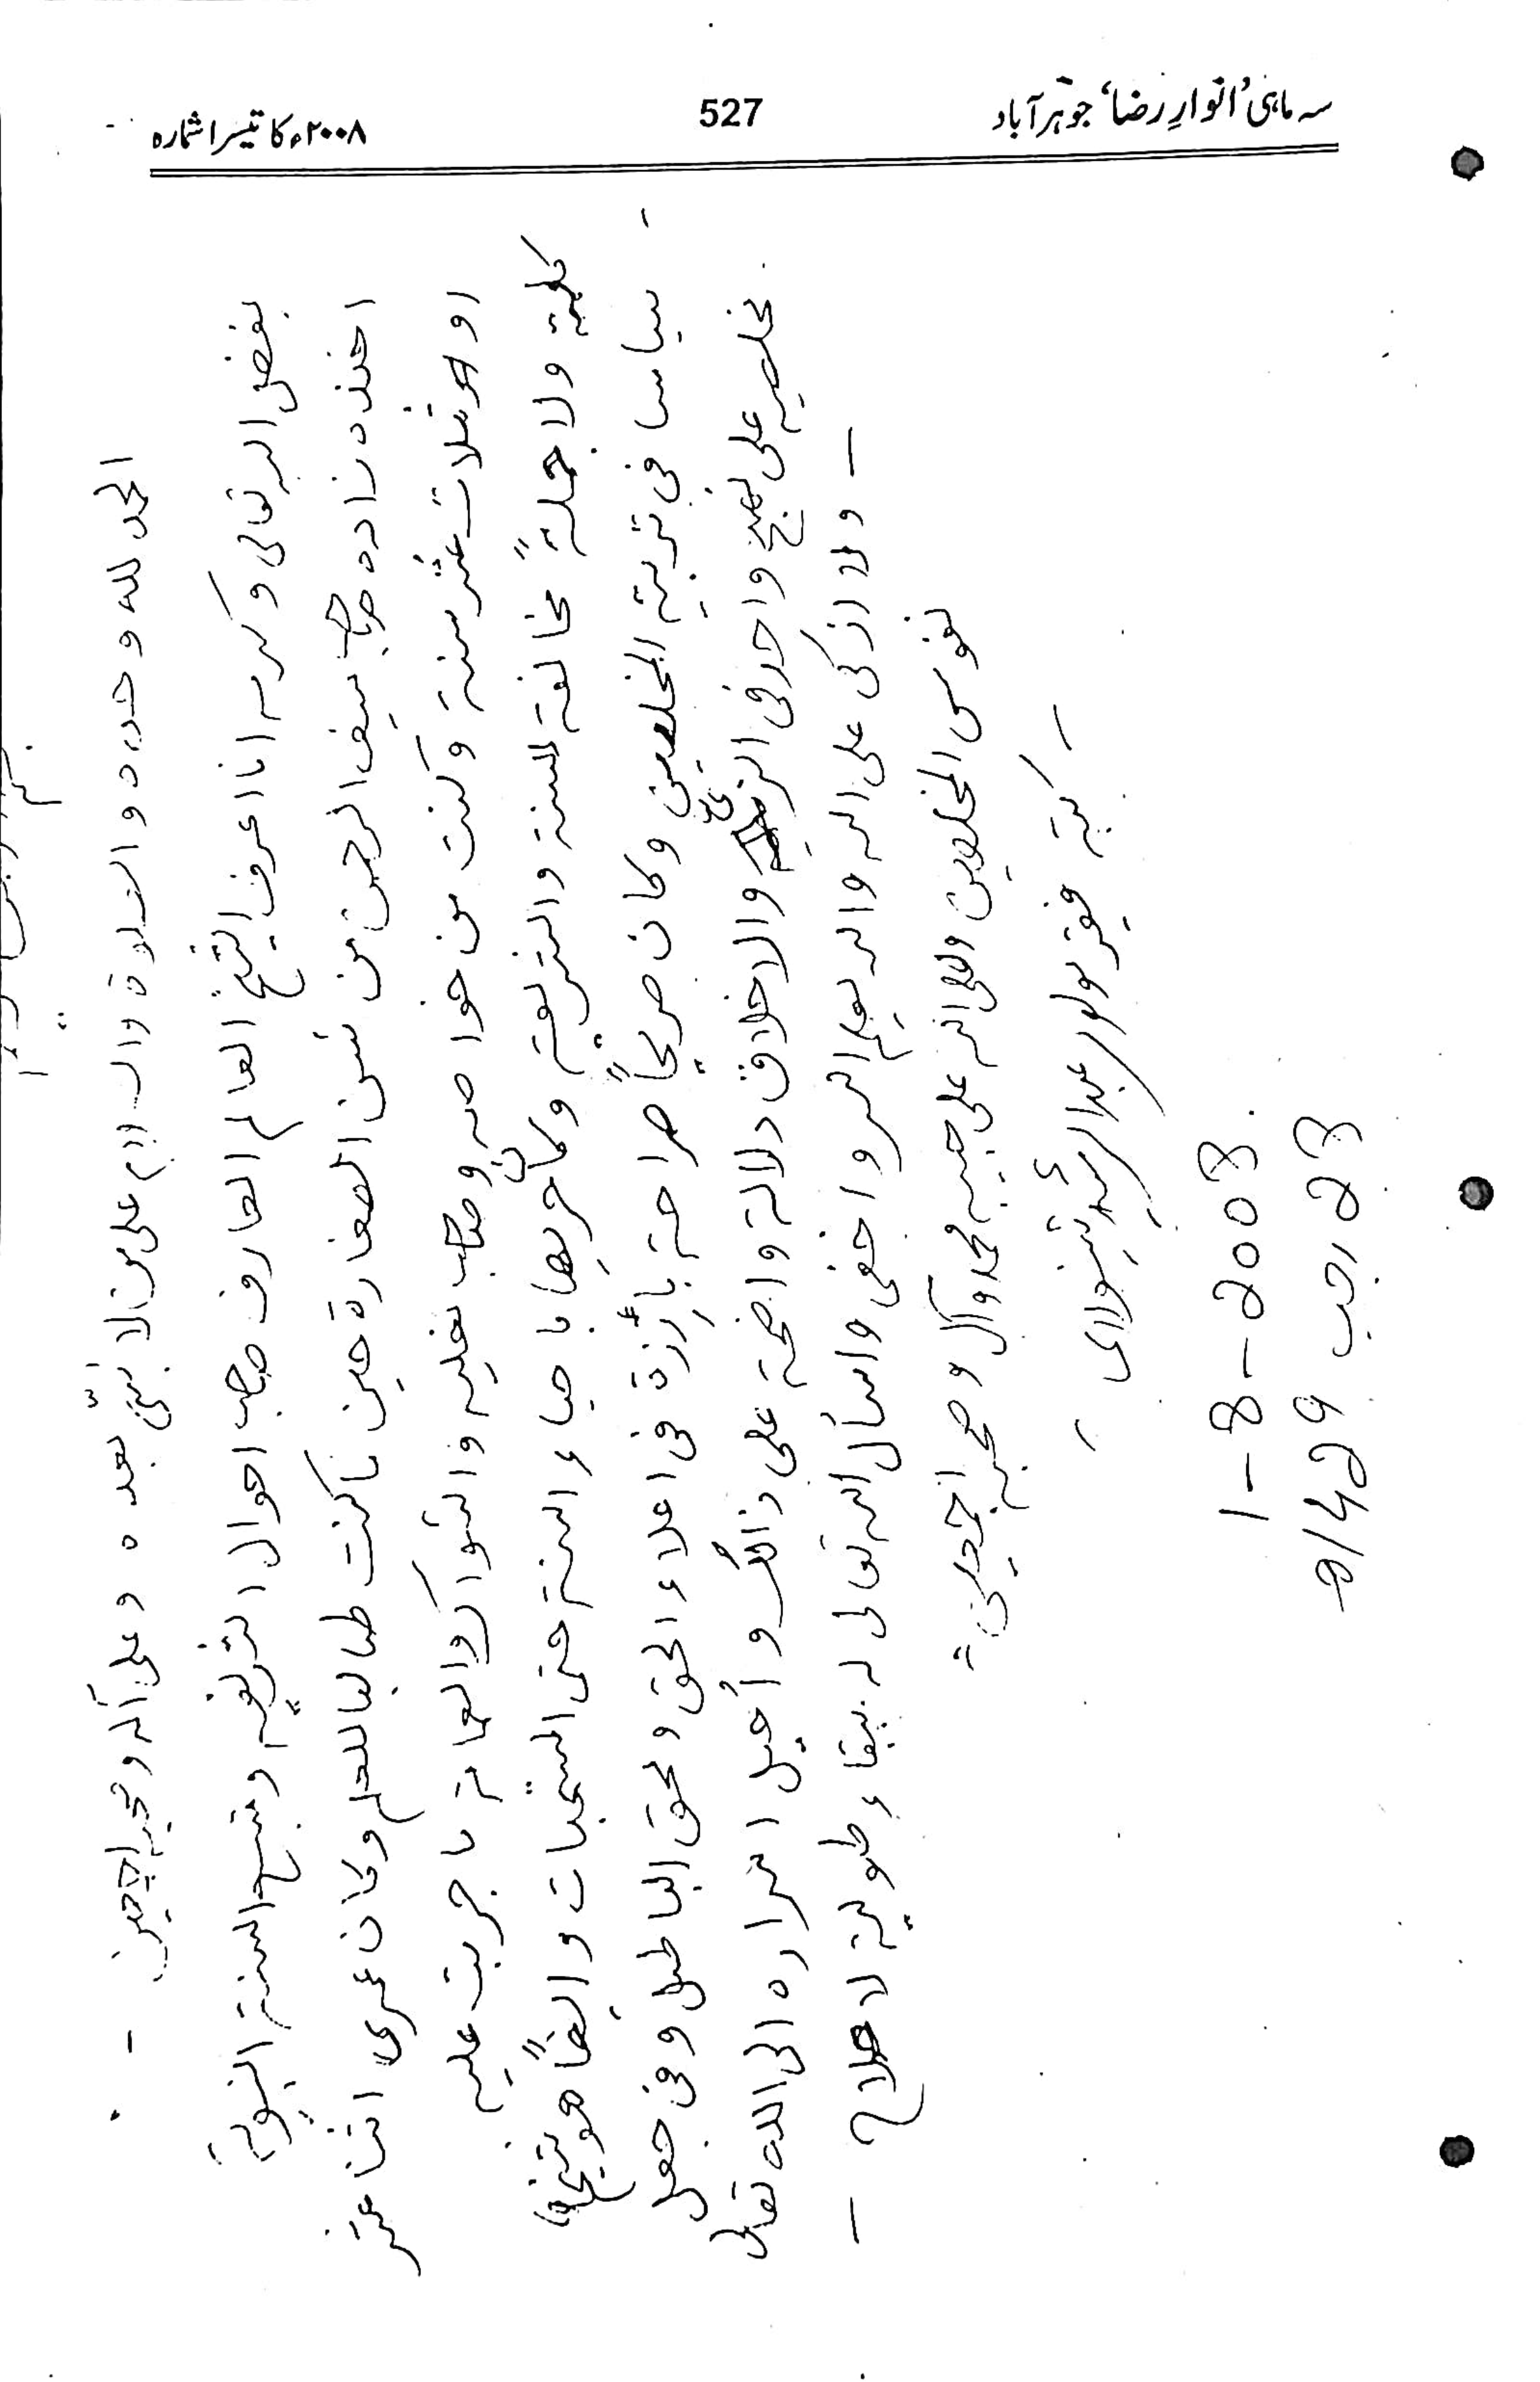 سہ ماہی ’انوارِ رضا‘ جوہر آباد
527
۲۰۰۸ء کا تیسرا شمارہ
الحمد لله وحده والصلوة والسلام على من لا نبيّ بعده وعلى آله وصحبه اجمعين -
بفضل الله تعالى وكرمه انا اعرف الشيخ العالم العارف صاحب احوال الشريفه ومتبع السنة النبوية
اخند زاده صاحب سيف الرحمن من سن الصغارة حين ما كنت طالبا للعلم وكان عمرى اثنا عشر
او ثلاث عشر سنة وكنت من خواصه وصاحب نعليه والتواكر والعمامة ما جربت عليه
كلمة ولا جملةً مخالفة للسنة والشريعة وكان حريصا باحياء السنة حتى المستحبات وايضًا هو شيخنا
سياسا فى تربية المخلصين وكان صريحاً صراحة بارزة فى اعلاء الحق ومحق الباطل وفى جعل
مخلصيه على نهج واحد فى الزى والاخلاق دلالة واضحة على ذالك وأحيل اسراره الى الله تعالى
- ولا ازكى على الله والله يعلم السر واخفى واسأل الله تعالى له ببقاء طويلة لاصلاح -
نفوس المخلصين وصلى الله على حبيبه محمد وآله وصحبه اجمعين
كتبه فقير مولوى عبد الرشيد
1-8-2008
23 رجب 1429ھ